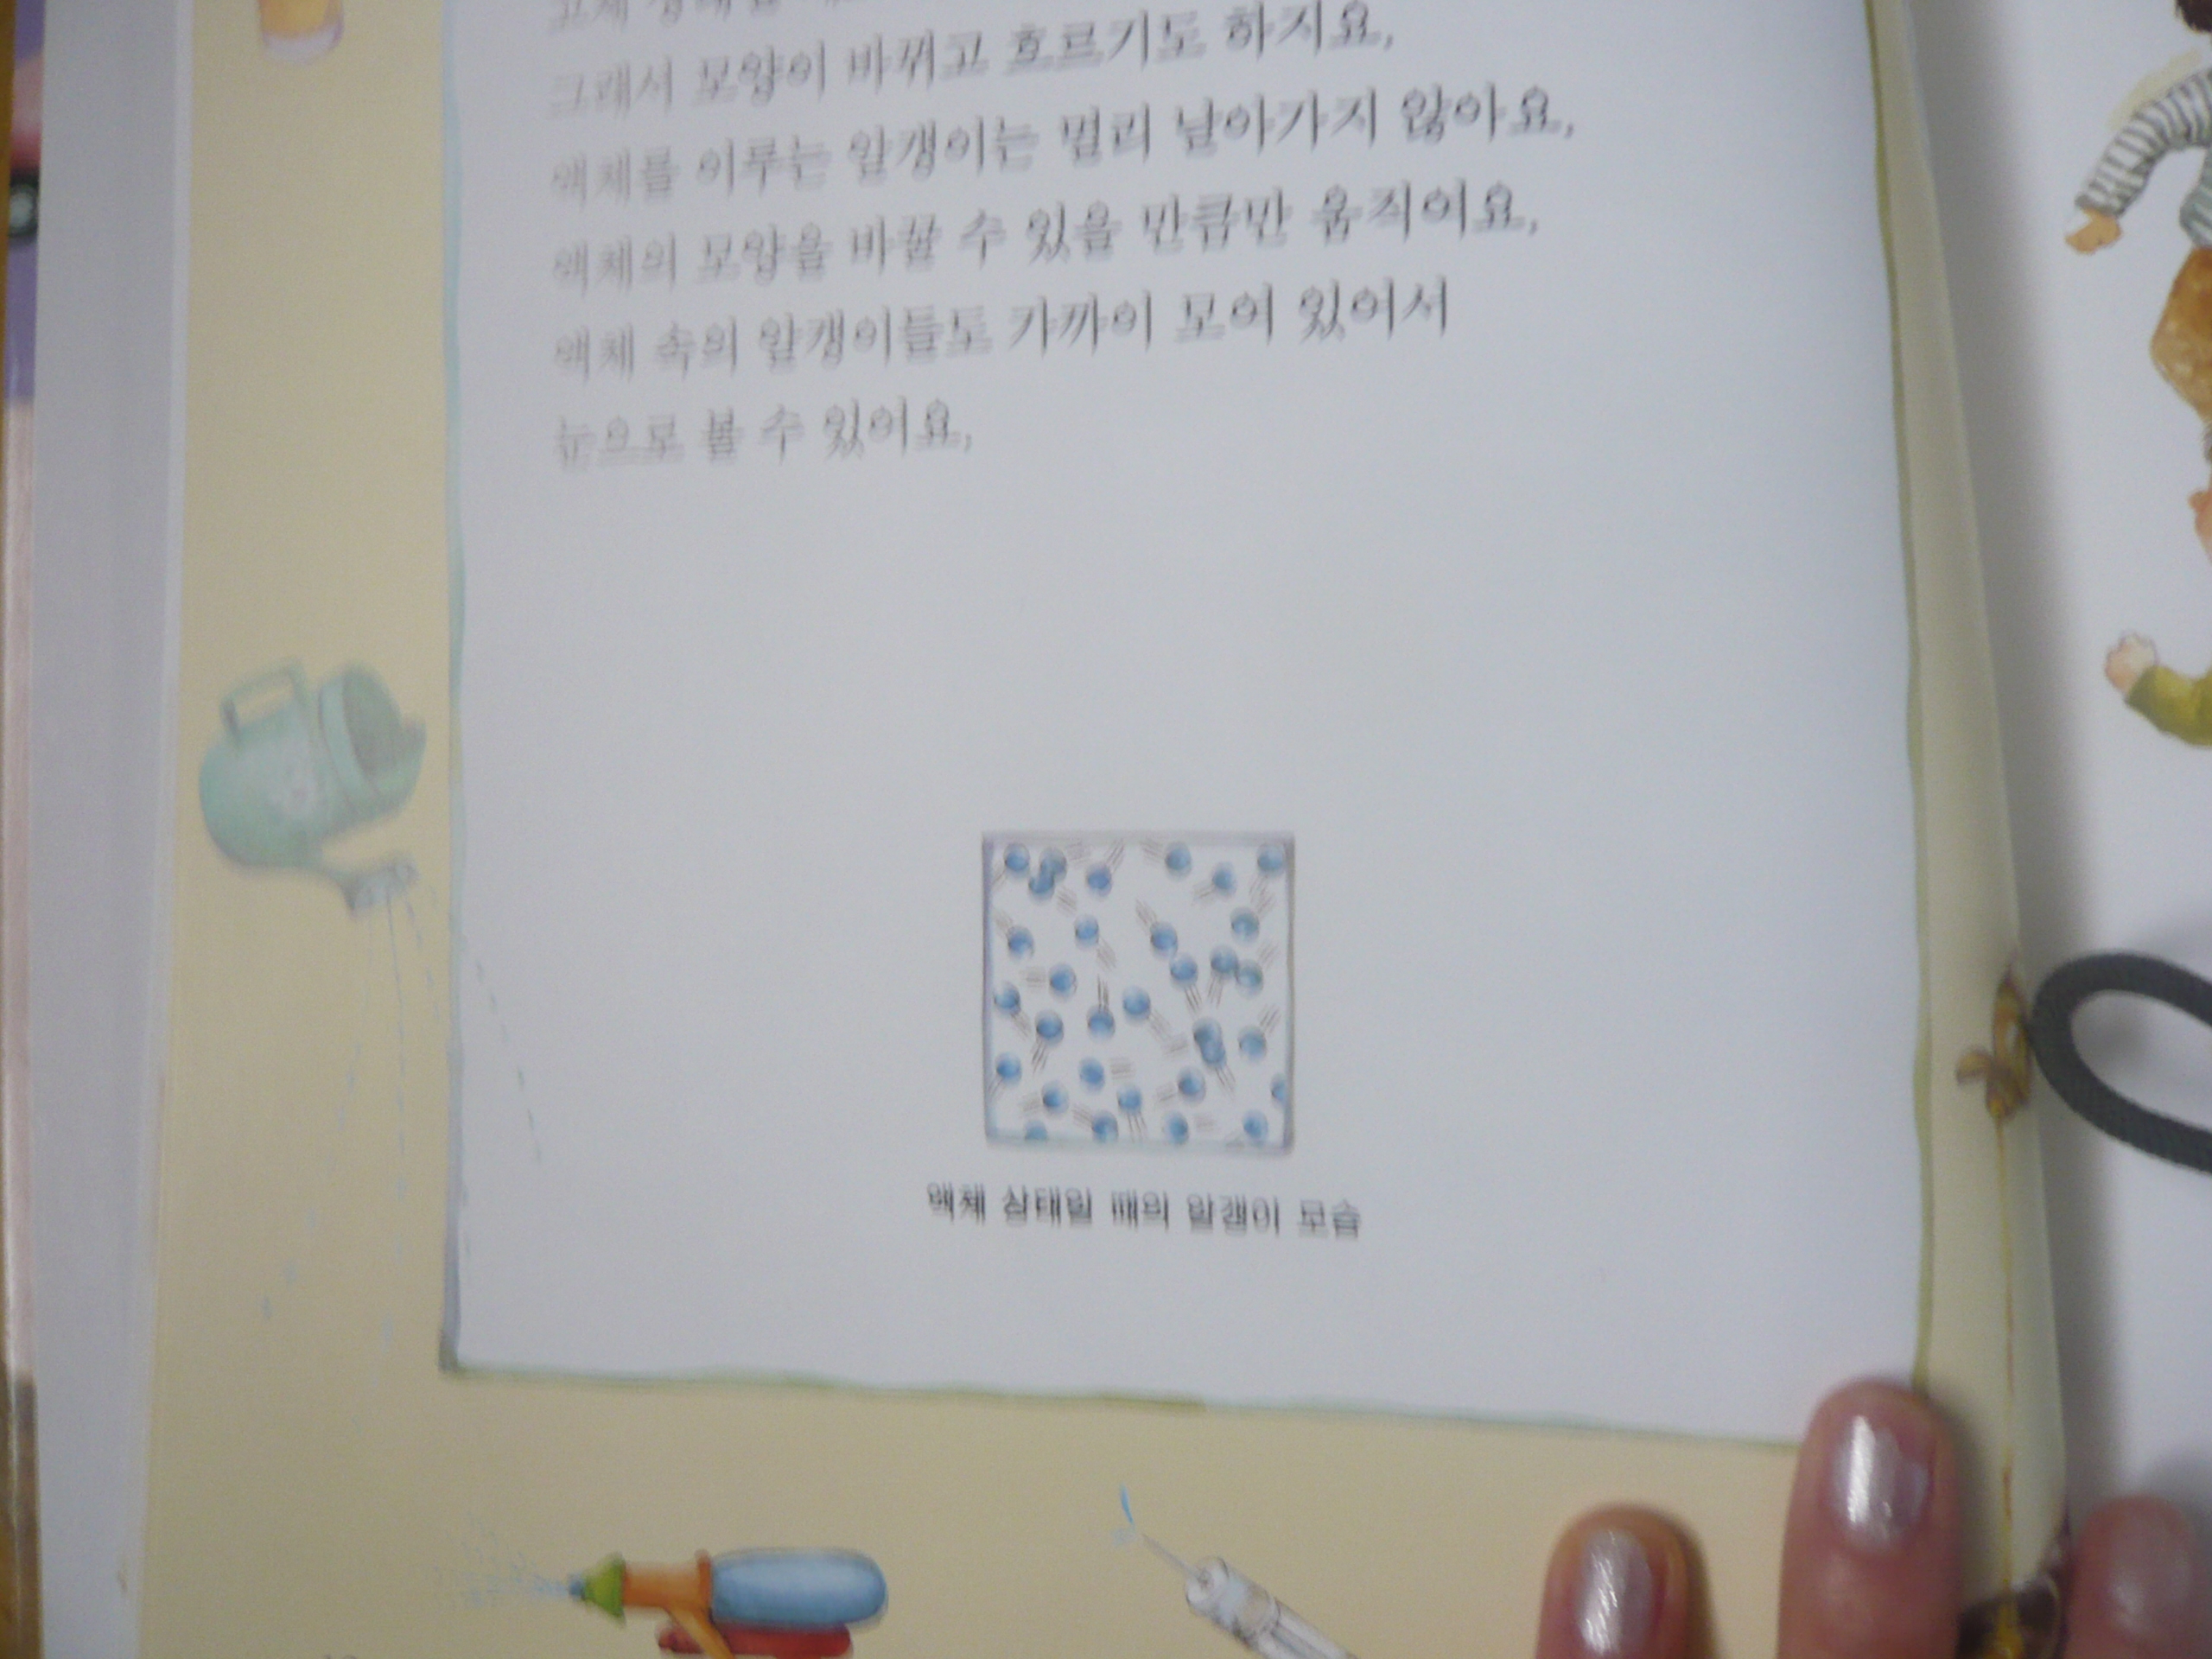 그래서 모양이 바뀌고 흐르기도 하지요.
액체를 이루는 알갱이는 멀리 날아가지 않아요.
액체의 모양을 바꿀 수 있을 만큼만 움직이요.
액체 속의 알갱이들도 가까이 모여 있어서
눈으로 볼 수 있어요.
액체 상태일 때의 알갱이 모습